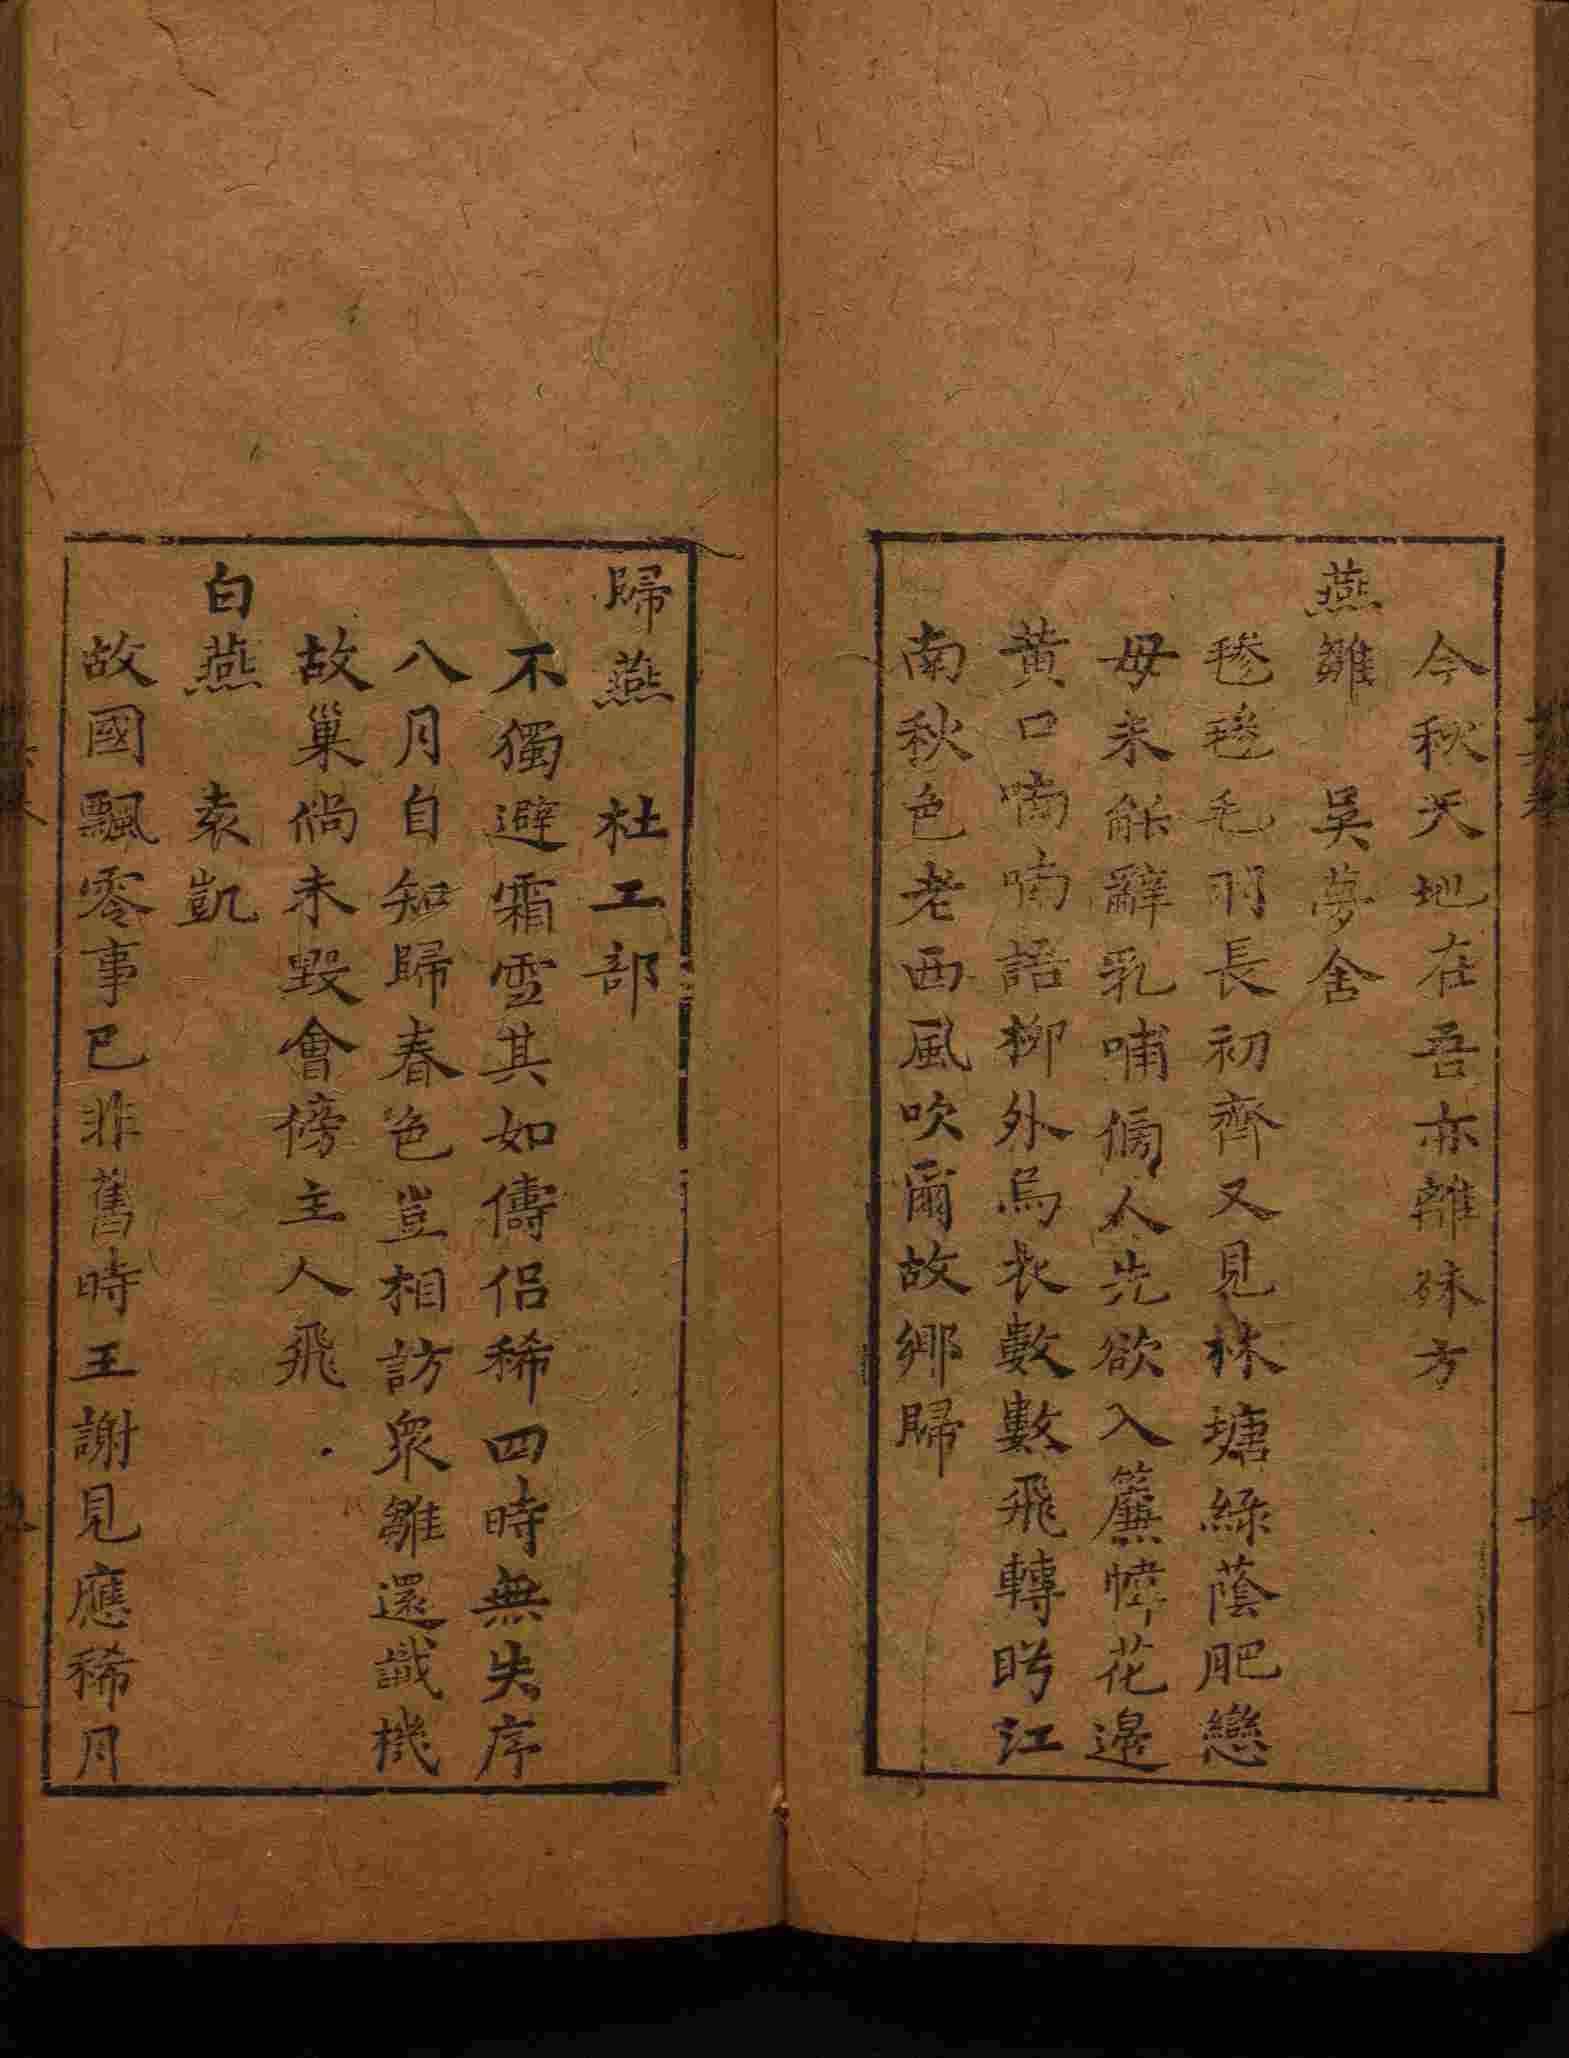 今秋天地在吾亦離殊方
燕雛 吳夢舍
毿毿毛羽長初齊又見林塘綠蔭肥戀
母未能辭乳哺傍人先欲入簾幃花邊
黃口喃喃語柳外烏衣數數飛轉盻江
南秋色老西風吹爾故鄉歸
歸燕 杜工部
不獨避霜雪其如儔侶稀四時無失序
八月自知歸春色豈相訪衆雛還識機
故巢倘未毀會傍主人飛
白燕 袁凱
故國飄零事已非舊時王謝見應稀月